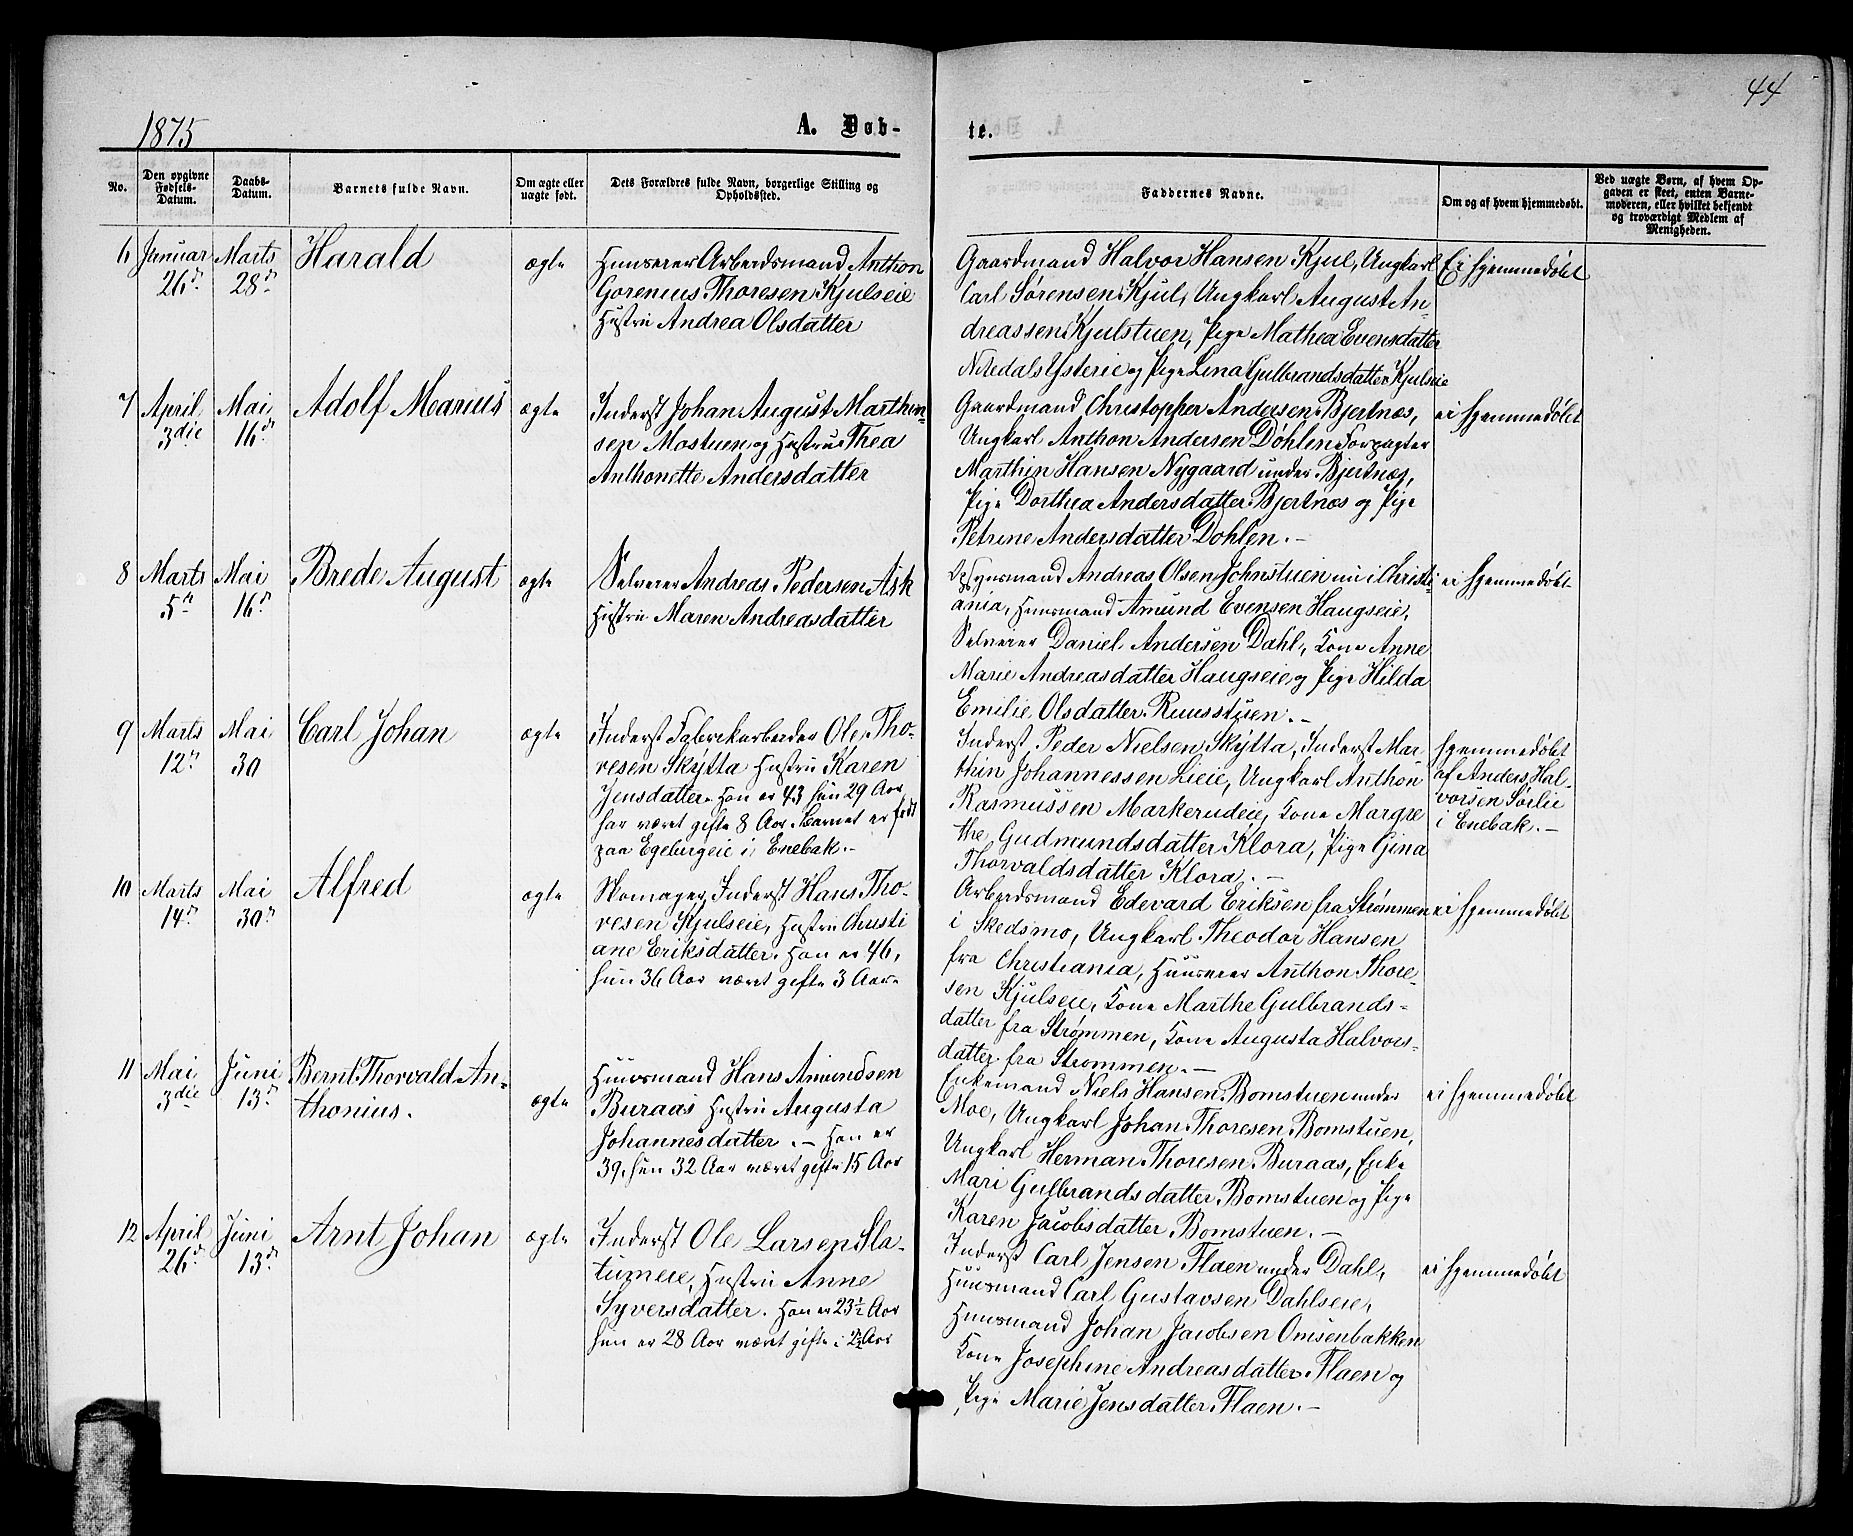 44
1875
A. Døb-
te.
No.
Den opgivne Fødsels-Datum.
Daabs-Datum.
Barnets fulde Navn.
Om ægte eller uægte født.
Dets Forældres fulde Navn, borgerlige Stilling og Opholdssted.
Faddernes Navne.
Om og af hvem hjemmedøbt.
Ved uægte Børn, af hvem Opgaven er skeet, enten Barnemoderen, eller hvilket bekjendt og troværdigt Medlem af Menigheden.
6 Januar 26de Marts 28de Harald ægte
Huuseier Arbeidsmand Anthon
Gorenius Thoresen Kjulseie
Hustru Andrea Olsdatter
Gaardmand Halvor Hansen Kjul, Ungkarl
Carl Sørensen Kjul, Ungkarl August An-
dreassen Kjulstuen, Pige Mathea Evensdatter
Nitedals Ysterie og Pige Lina Gulbrandsdatter Kjulseie
Ei hjemmedøbt
7 April 3die Mai 16de Adolf Marius ægte
Inderst Johan August Marthin-
sen Mostuen og Hustru Thea
Anthonette Andersdatter
Gaardmand Christopher Andersen Bjertnæs,
Ungkarl Anthon Andersen Døhlen Forpagter
Marthin Hansen Nygaard under Bjertnæs,
Pige Dorthea Andersdatter Bjertnæs og Pige
Petrine Andersdatter Døhlen.-
ei hjemmedøbt
8 Marts 5te Mai 16de Brede August ægte
Selveier Andreas Pedersen Ask
Hustru Maren Andreasdatter
Opsynsmand Andreas Olsen Johnstuen nu i Christi-
ania, Huusmand Amund Evensen Haugseie,
Selveier Daniel Andersen Dahl, Kone Anne
Marie Andreasdatter Haugseie og Pige Hilda
Emilie Olsdatter Ruusstuen.-
ei hjemmedøbt
9 Marts 12te Mai 30 Carl Johan ægte
Inderst Fabrikarbeider Ole Tho-
resen Skÿtta Hustru Karen
Jensdatter. Han er 43 hun 29 Aar
har været gifte 8 Aar. Barnet er født
paa Egebergeie i Enebak.-
Inderst Peder Nielsen Skÿtta, Inderst Mar-
thin Johannessen Lieie, Ungkarl Anthon
Rasmussen Markerudeie, Kone Margre
the Gudmundsdatter Klora, Pige Gina
Thorvaldsdatter Klora.-
hjemmedøbt
af Anders Hal-
vorsen Sørlie
i Enebak.-
10 Marts 14de Mai 30te Alfred ægte
Skomager, Inderst Hans Tho-
resen Kjulseie, Hustru Christi
ane Eriksdatter. Han er 46,
hun 36 Aar været gifte 3 Aar.
Arbeidsmand Edevard Eriksen fra Strømmen
i Skedsmo, Ungkarl Theodor Hansen
fra Christiania, Huuseier Anthon Thore-
sen Kjulseie, Kone Marthe Gulbrands-
datter fra Strømmen, Kone Augusta Halvors-
datter fra Strømmen.-
ei hjemmedøbt
11 Mai 3die Juni 13de Bernt Thorvald An-
thonius. ægte
Huusmand Hans Amundsen
Buraas Hustru Augusta
Johannesdatter.- Han er
39, hun 32 Aar været gifte 15 Aar
Enkemand Niels Hansen Bomstuen under
Moe, Ungkarl Johan Thoresen Bomstuen,
Ungkarl Herman Thoresen Buraas, Enke
Mari Gulbrandsdatter Bomstuen og Pige
Karen Jacobsdatter Bomstuen.-
ei hjemmedøbt
12 April 26de Juni 13de Arnt Johan ægte
Inderst Ole Larsen Sla-
tumeie, Hustru Anne
Syversdatter. Han er 23½ Aar
hun er 28 Aar været gifte i 2½ Aar
Inderst Carl Jensen Flaen under Dahl,
Huusmand Carl Gustavsen Dahlseie,
Huusmand Johan Jacobsen Omsenbakken
Kone Josephine Andreasdatter Flaen og
Pige Marie Jensdatter Flaen.-
ei hjemmedøbt